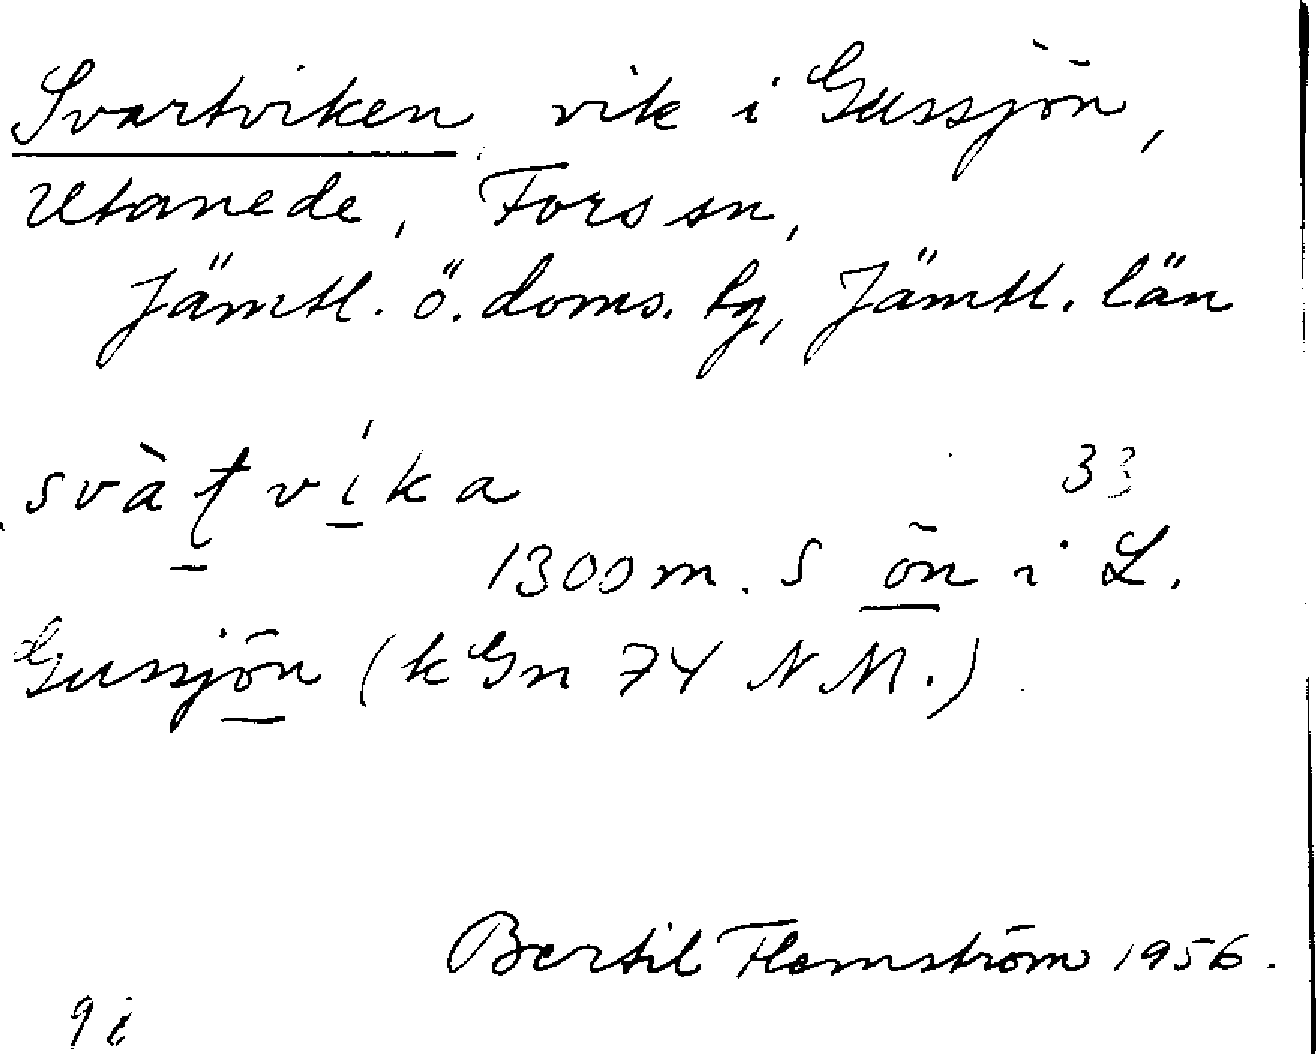 Svartviken vik i Gussjön,
Utanede, Fors sn,
Jämtl. ö. doms. lg, Jämtl. län
svàtvíka
33
1300 m. S ön i L.
Gussjön (kGn 74 N.M.)
Bertil Flemström 1956.
9 i